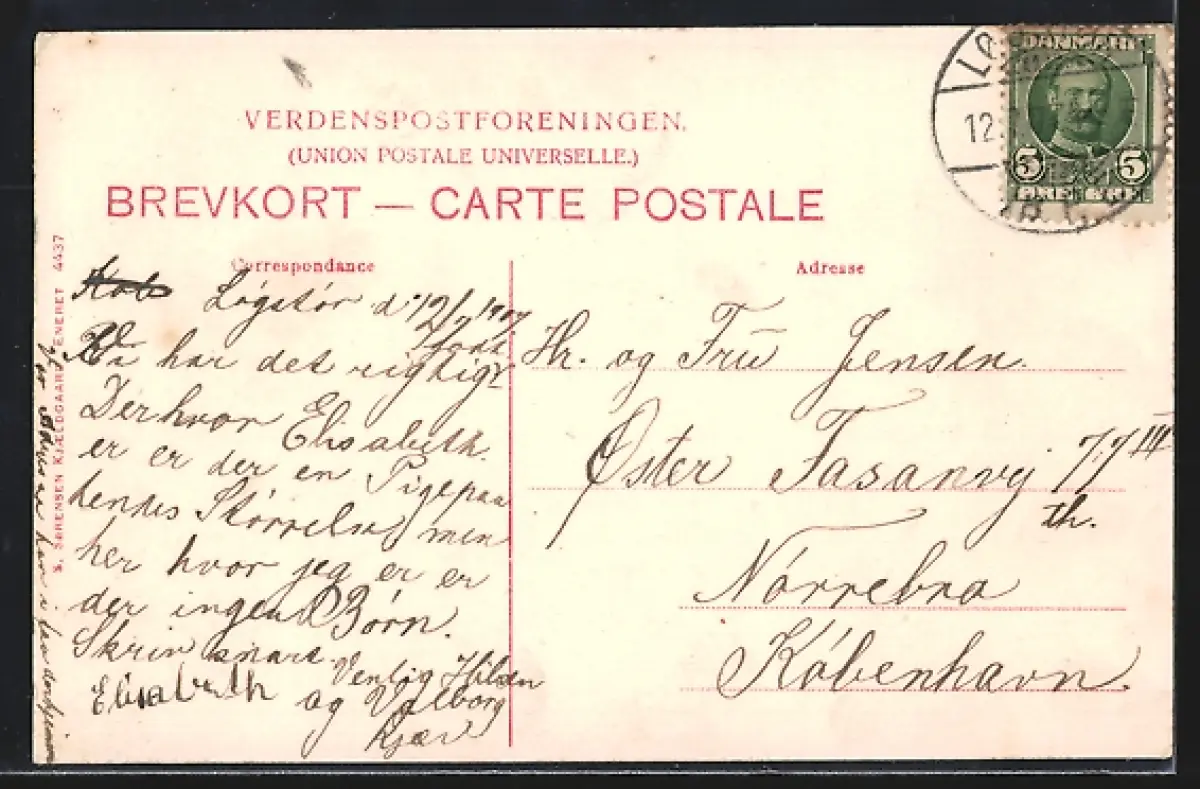 VERDENSPOSTFORENINGEN.
(UNION POSTALE UNIVERSELLE.)
BREVKORT — CARTE POSTALE
Correspondance
Adresse
DANMARK
5 5
ØRE
12
Løgstør d. 12/7 1907
Vi har det rigtigt godt.
Derhvor Elisabeth
er er der en Pige paa
hendes Størrelse men
her hvor jeg er er
der ingen Børn.
Skriv snart.
Venlig Hilsen
Elisabeth og Valborg
Kjær
Hr. og Fru Jensen.
Øster Fasanvej 77 III
th.
Nørrebro
København.
S. SØRENSEN KJÆLDGAARD ENERET 4437